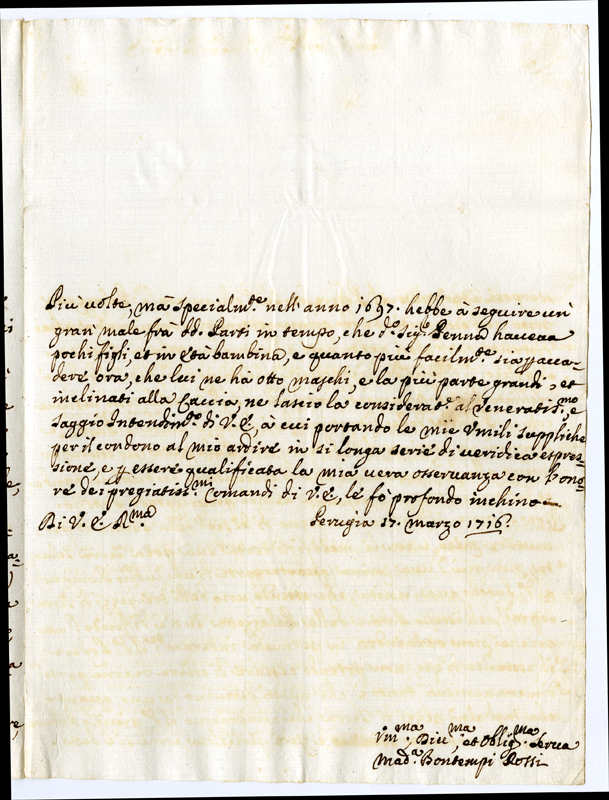 Più volte, mà specialm.te nell'anno 1697. hebbe à seguire un
gran male frà dd. Parti in tempo, che d.o Sig.r Penna haveva
pochi figli, et in età bambina, e quanto più facilm.te sia p acca-
dere ora, che lui ne hà otto maschi, e la più parte grandi, et
inclinati alla Caccia, ne lascio la considerat.e al Veneratis.mo, e
saggio Intendim.to di V. E., à cui portando le mie Umili suppliche
per il condono al mio ardire in sì longa serie di veridica espres-
sione, e p essere qualificata la mia vera osservanza con l'ono-
re dei pregiatiss.mi comandi di V. E., le fò profondo inchino
Di V. E. R.ma
Perugia 17. Marzo 1716.
Um.ma, Div.ma, et Oblig.ma Serva
Mad.a Bontempi Rossi